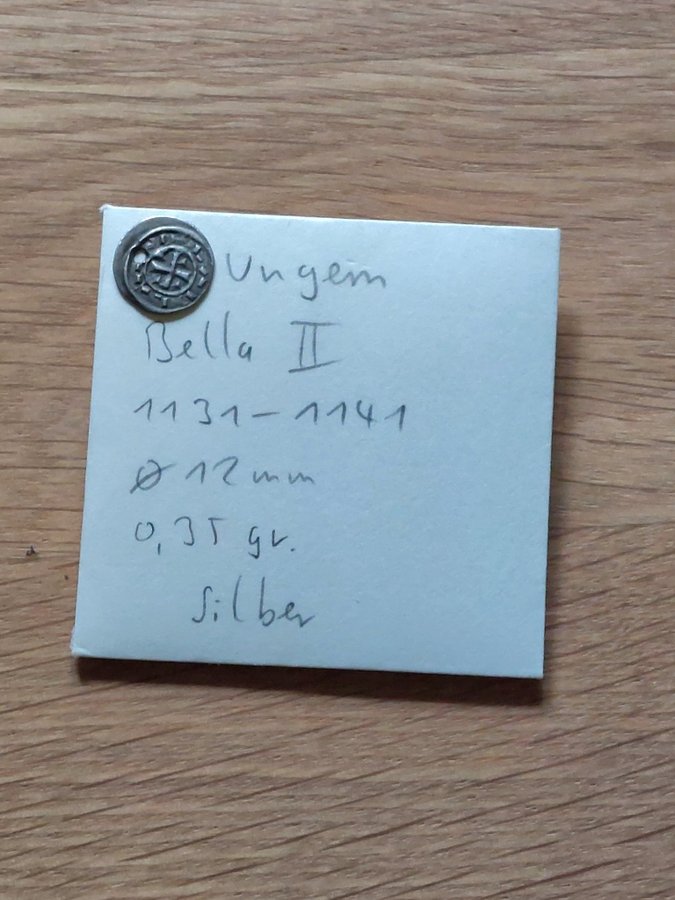 Ungern
Bella II
1131-1141
Ø 12mm
0,35 gr.
Silber